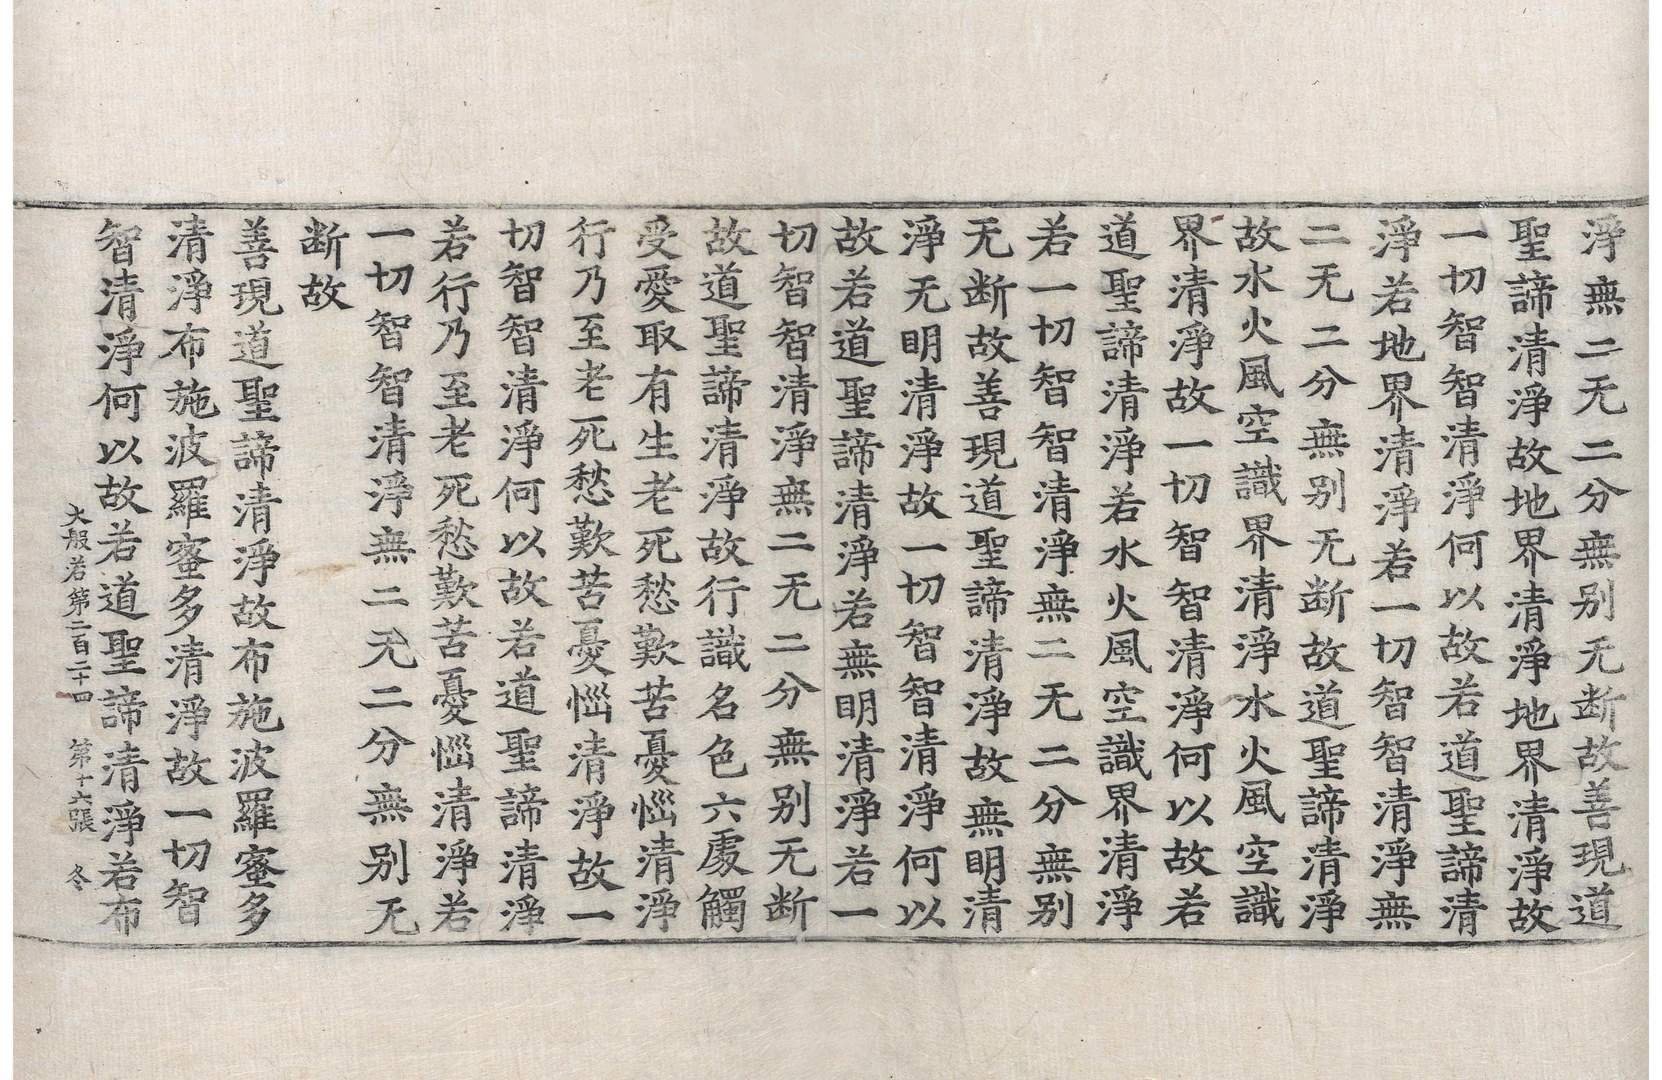 淨無二无二分無別无断故善現道
聖諦清淨故地界清淨地界清淨故
一切智智清淨何以故若道聖諦清
淨若地界清淨若一切智智清淨無
二无二分無別无断故道聖諦清淨
故水火風空識界清淨水火風空識
界清淨故一切智智清淨何以故若
道聖諦清淨若水火風空識界清淨
若一切智智清淨無二无二分無別
无断故善現道聖諦清淨故無明清
淨无明清淨故一切智智清淨何以
故若道聖諦清淨若無明清淨若一
切智智清淨無二无二分無別无断
故道聖諦清淨故行識名色六處觸
受愛取有生老死愁歎苦憂惱清淨
行乃至老死愁歎苦憂惱清淨故一
切智智清淨何以故若道聖諦清淨
若行乃至老死愁歎苦憂惱清淨若
一切智智清淨無二无二分無別无
断故
善現道聖諦清淨故布施波羅蜜多
清淨布施波羅蜜多清淨故一切智
智清淨何以故若道聖諦清淨若布
大般若第二百二十四 第十六張 冬